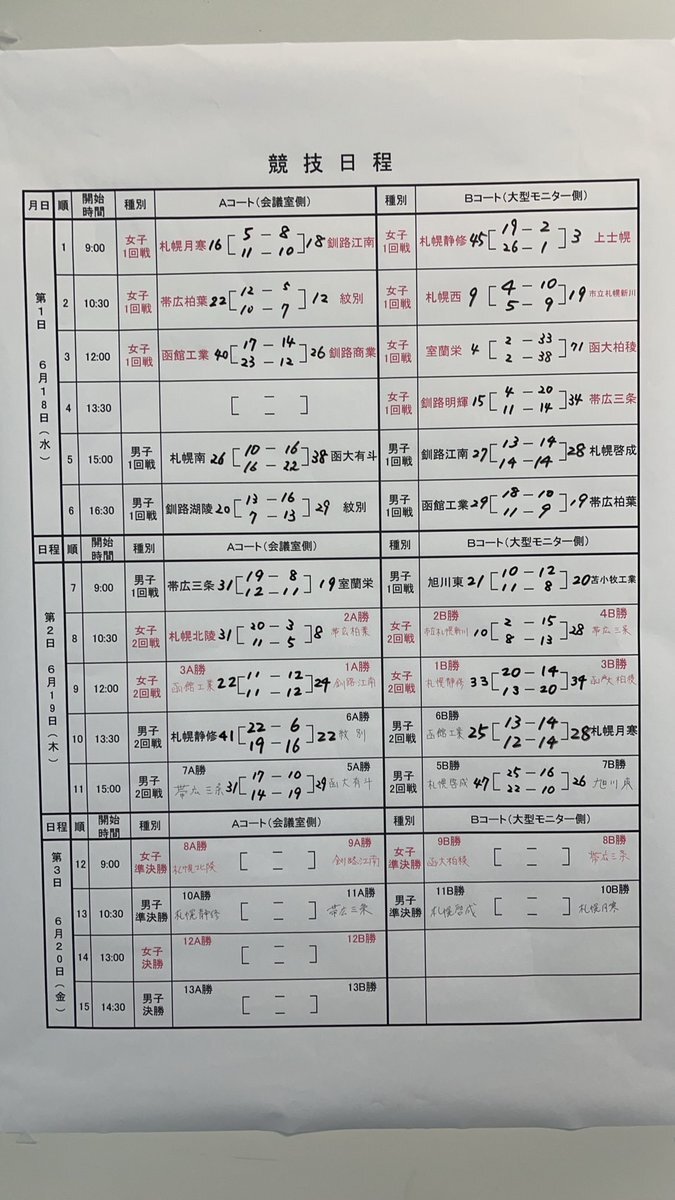 競技日程
月日 順 開始時間 種別 Aコート(会議室側) 種別 Bコート(大型モニター側)
第1日 6月18日(水)
1 9:00 女子1回戦 札幌月寒 16 [5-8 11-10] 18 釧路江南 女子1回戦 札幌静修 45 [19-2 26-1] 3 上士幌
2 10:30 女子1回戦 帯広柏葉 22 [12-5 10-7] 12 紋別 女子1回戦 札幌西 9 [4-10 5-9] 19 市立札幌新川
3 12:00 女子1回戦 函館工業 40 [17-14 23-12] 26 釧路商業 女子1回戦 室蘭栄 4 [2-33 2-38] 71 函大柏稜
4 13:30 [- -] 女子1回戦 釧路明輝 15 [4-20 11-14] 34 帯広三条
5 15:00 男子1回戦 札幌南 26 [10-16 16-22] 38 函大有斗 男子1回戦 釧路江南 27 [13-14 14-14] 28 札幌啓成
6 16:30 男子1回戦 釧路湖陵 20 [13-16 7-13] 29 紋別 男子1回戦 函館工業 29 [18-10 11-9] 19 帯広柏葉
日程 順 開始時間 種別 Aコート(会議室側) 種別 Bコート(大型モニター側)
第2日 6月19日(木)
7 9:00 男子1回戦 帯広三条 31 [19-8 12-11] 19 室蘭栄 男子1回戦 旭川東 21 [10-12 11-8] 20 苫小牧工業
8 10:30 女子2回戦 札幌北陵 31 [20-3 11-5] 8 2A勝 帯広柏葉 女子2回戦 2B勝 市立札幌新川 10 [2-15 8-13] 28 4B勝 帯広三条
9 12:00 女子2回戦 3A勝 函館工業 22 [11-12 11-12] 24 1A勝 釧路江南 女子2回戦 1B勝 札幌静修 33 [20-14 13-20] 34 3B勝 函大柏稜
10 13:30 男子2回戦 札幌静修 41 [22-6 19-16] 22 6A勝 紋別 男子2回戦 6B勝 函館工業 25 [13-14 12-14] 28 札幌月寒
11 15:00 男子2回戦 7A勝 帯広三条 31 [17-10 14-19] 29 5A勝 函大有斗 男子2回戦 5B勝 札幌啓成 47 [25-16 22-10] 26 7B勝 旭川東
日程 順 開始時間 種別 Aコート(会議室側) 種別 Bコート(大型モニター側)
第3日 6月20日(金)
12 9:00 女子準決勝 8A勝 札幌北陵 [- -] 9A勝 釧路江南 女子準決勝 9B勝 函大柏稜 [- -] 8B勝 帯広三条
13 10:30 男子準決勝 10A勝 札幌静修 [- -] 11A勝 帯広三条 男子準決勝 11B勝 札幌啓成 [- -] 10B勝 札幌月寒
14 13:00 女子決勝 12A勝 [- -] 12B勝
15 14:30 男子決勝 13A勝 [- -] 13B勝